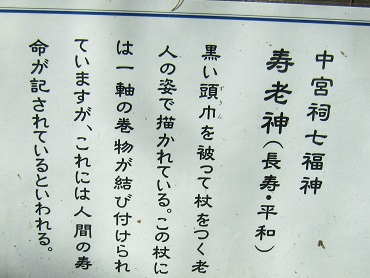 中宮祠七福神
寿老神(長寿・平和)
黒い頭巾を被って杖をつく老
人の姿で描かれている。この杖に
は一軸の巻物が結び付けられ
ていますが、これには人間の寿
命が記されているといわれる。